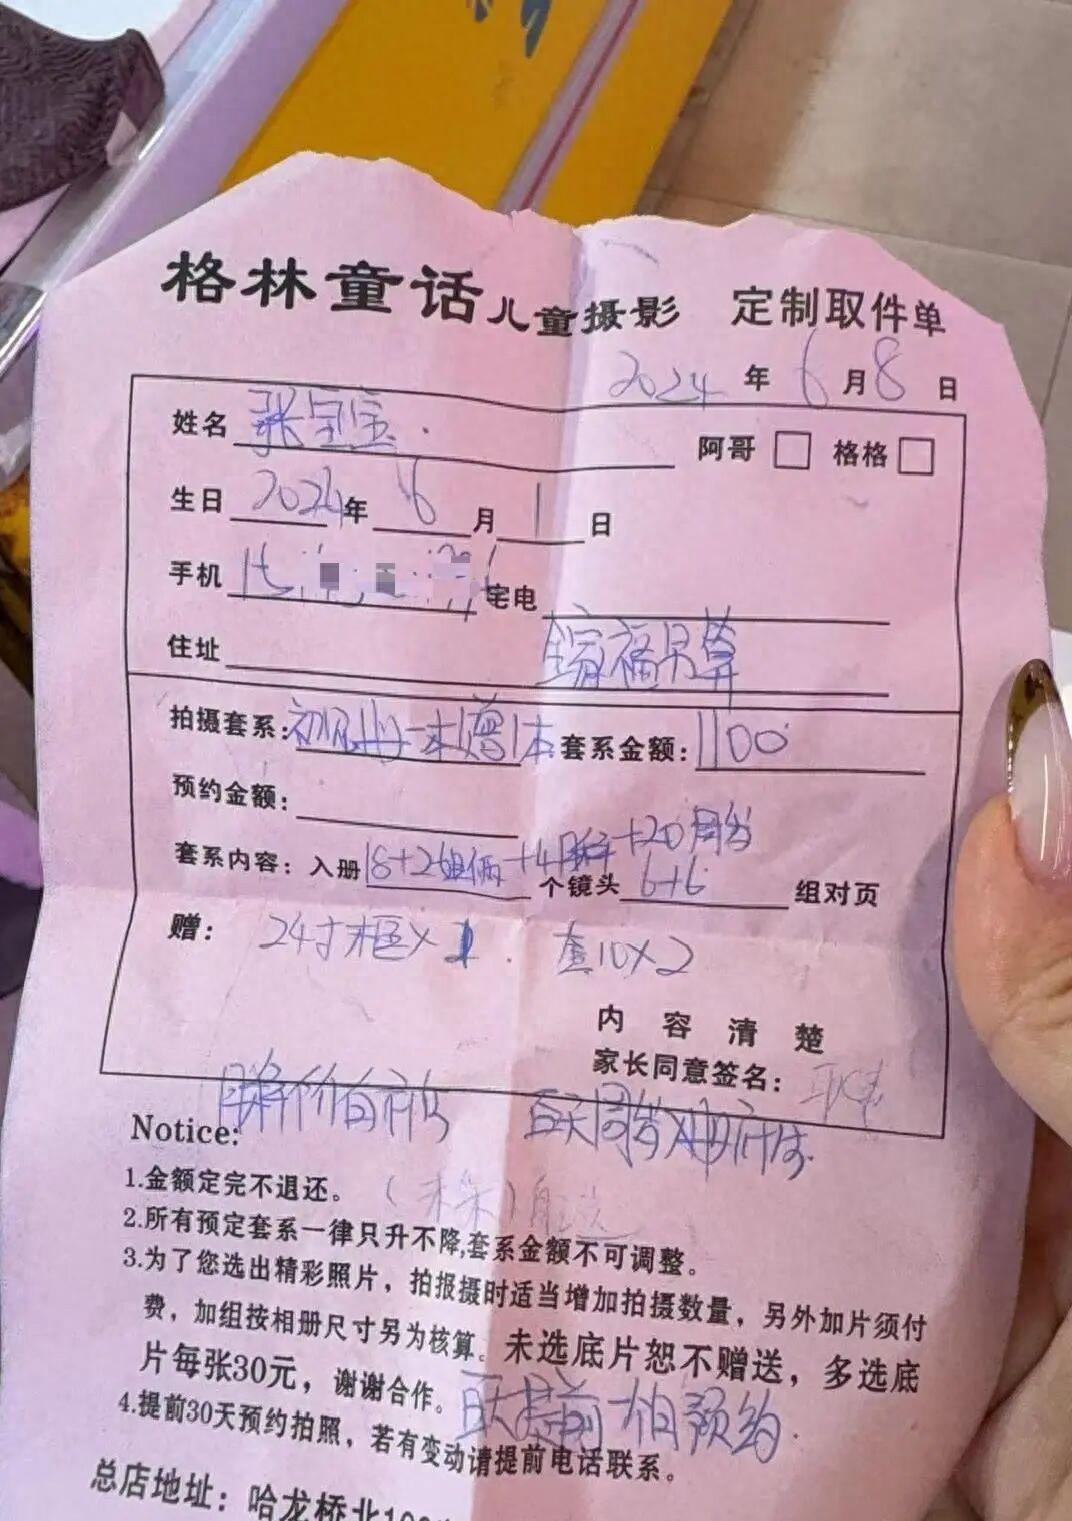 格林童话儿童摄影 定制取件单
2024年6月8日
姓名 张宝宝
阿哥 格格
生日 2024年6月1日
手机 宅电
住址 全家福另算
拍摄套系: 一本赠1本 套系金额: 1100
预约金额:
套系内容: 入册18+2 +4 +20周岁 个镜头 6+6 组对页
赠: 24寸框×1 10×2
内容清楚
家长同意签名:
百天周岁
Notice:
1.金额定完不退还。
2.所有预定套系一律只升不降,套系金额不可调整。
3.为了您选出精彩照片，拍报摄时适当增加拍摄数量，另外加片须付
费，加组按相册尺寸另为核算。未选底片恕不赠送，多选底
片每张30元，谢谢合作。
百天提前 预约
4.提前30天预约拍照，若有变动请提前电话联系。
总店地址：哈龙桥北